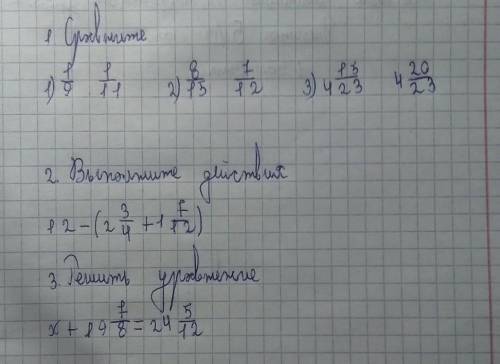 1. Сравните
1) 7/9 7/11 2) 8/13 7/12 3) 4 15/23 4 20/23
2. Выполните действия
12 - (2 3/4 + 1 7/12)
3. Решить уравнение
x + 19 7/8 = 24 5/12